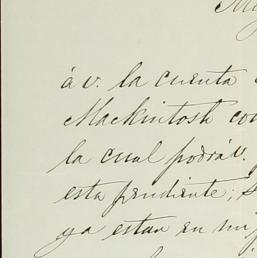 My
á v. la cuenta
Mackintosh con
la cual podrá v.
esta pendiente;
ya estan en mi